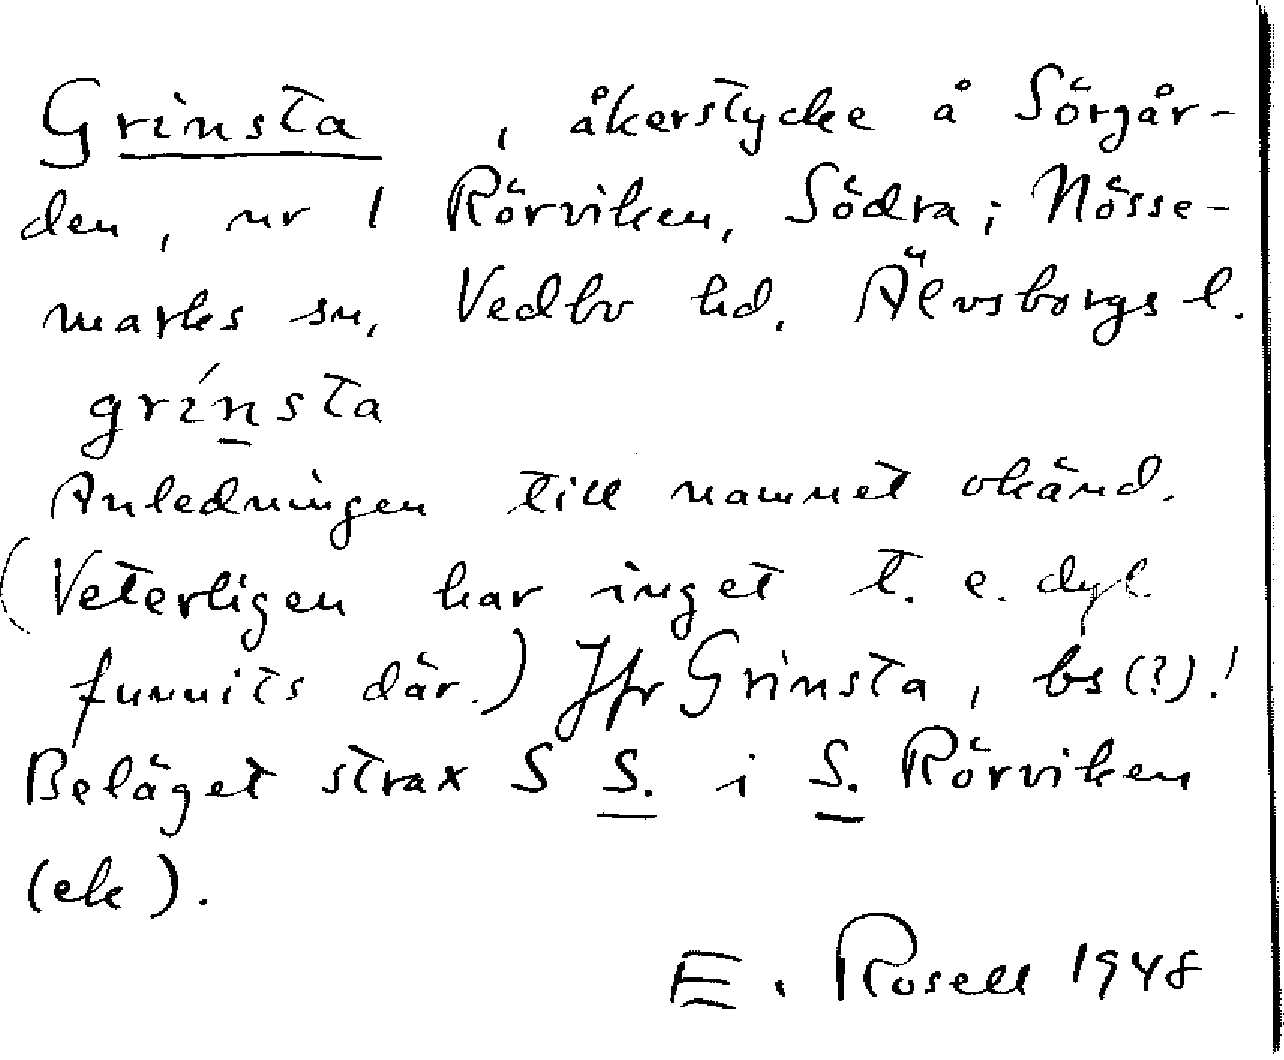 Grinsta, åkerstycke å Sörgår-
den, nr 1 Rörviken, Södra; Nösse-
marks sn, Vedbo hd. Älvsborgs l.
grínsta
Anledningen till namnet okänd.
(Veterligen har inget t. e. dyl
funnits där.) Jfr Grinsta, bs (?)!
Beläget strax S S. i S. Rörviken
(ek).
E. Rosell 1948